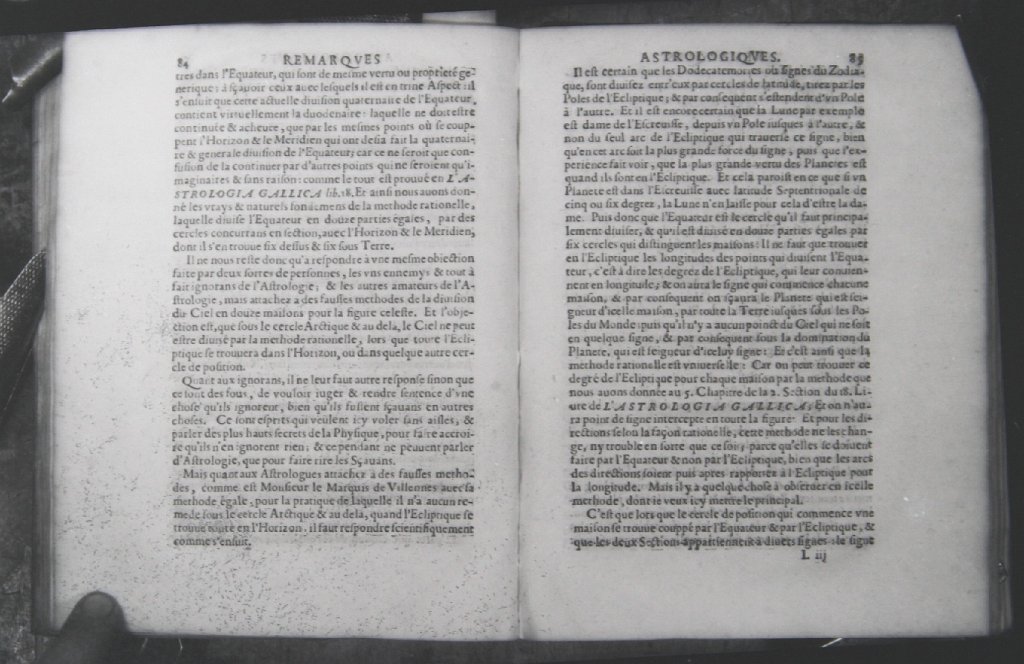 84 REMARQVES
tres dans l'Equateur, qui sont de mesme vertu ou proprieté ge-
nerique: à sçauoir ceux auec lesquels il est en trine Aspect: il
s'ensuit que cette actuelle diuision quaternaire de l'Equateur,
contient virtuellement la duodenaire: laquelle ne doit estre
continuée & acheuée, que par les mesmes points où se coup-
pent l'Horizon & le Meridien qui ont desia fait la quaternai-
re & generale diuision de l'Equateur; car ce ne seroit que con-
fusion de la continuer par d'autres points qui ne seroient qu'i-
maginaires & sans raison: comme le tout est prouué en L'A-
STROLOGIA GALLICA lib. 18. Et ainsi nous auons don-
né les vrays & naturels fondemens de la methode rationelle,
laquelle diuise l'Equateur en douze parties égales, par des
cercles concurrans en section, auec l'Horizon & le Meridien,
dont il s'en trouue six dessus & six sous Terre.
Il ne nous reste donc qu'a respondre à vne mesme obiection
faite par deux sortes de personnes, les vns ennemys & tout à
fait ignorans de l'Astrologie; & les autres amateurs de l'A-
strologie, mais attachez a des fausses methodes de la diuision
du Ciel en douze maisons pour la figure celeste. Et l'obje-
ction est, que sous le cercle Arctique & au dela, le Ciel ne peut
estre diuisé par la methode rationelle, lors que toute l'Ecli-
ptique se trouuera dans l'Horizon, ou dans quelque autre cer-
cle de position.
Quant aux ignorans, il ne leur faut autre response sinon que
ce sont des fous, de vouloir iuger & rendre sentence d'vne
chose qu'ils ignorent, bien qu'ils fussent sçauans en autres
choses. Ce sont esprits qui veulent icy voler sans aisles, &
parler des plus hauts secrets de la Physique, pour faire accroi-
re qu'ils n'en ignorent rien; & cependant ne peuuent parler
d'Astrologie, que pour faire rire les Sçauans.
Mais quant aux Astrologues attachez à des fausses metho-
des, comme est Monsieur le Marquis de Villennes auec sa
methode égale, pour la pratique de laquelle il n'a aucun re-
mede sous le cercle Arctique & au dela, quand l'Ecliptique se
trouue toute en l'Horizon, il faut respondre scientifiquement
comme s'ensuit.
ASTROLOGIQVES. 85
Il est certain que les Dodecatemories ou signes du Zodia-
que, sont diuisez entr'eux par cercles de latitude, tirez par les
Poles de l'Ecliptique; & par consequent s'estendent d'vn Pole
à l'autre. Et il est encore certain que la Lune par exemple
est dame de l'Escreuisse, depuis vn Pole iusques à l'autre, &
non du seul arc de l'Ecliptique qui trauerse ce signe, bien
qu'en cet arc soit la plus grande force du signe, puis que l'ex-
perience fait voir, que la plus grande vertu des Planetes est
quand ils sont en l'Ecliptique. Et cela paroist en ce que si vn
Planete est dans l'Escreuisse auec latitude Septentrionale de
cinq ou six degrez, la Lune n'en laisse pour cela d'estre la da-
me. Puis donc que l'Equateur est le cercle qu'il faut principa-
lement diuiser, & qu'il est diuisé en douze parties égales par
six cercles qui distinguent les maisons: Il ne faut que trouuer
en l'Ecliptique les longitudes des points qui diuisent l'Equa-
teur, c'est à dire les degrez de l'Ecliptique, qui leur conuien-
nent en longitude; & on aura le signe qui commence chacune
maison, & par consequent on sçaura le Planete qui est sei-
gneur d'icelle maison, par toute la Terre iusques sous les Po-
les du Monde: puis qu'il n'y a aucun poinct du Ciel qui ne soit
en quelque signe, & par consequent sous la domination du
Planete, qui est seigneur d'iceluy signe: Et c'est ainsi que la
methode rationelle est vniuerselle: Car on peut trouuer ce
degré de l'Ecliptique pour chaque maison par la methode que
nous auons donnée au 5. Chapitre de la 2. Section du 18. Li-
ure de L'ASTROLOGIA GALLICA; Et on n'au-
ra point de signe intercepté en toute la figure. Et pour les di-
rections selon la façon rationelle, cette methode ne les chan-
ge, ny trouble en sorte que ce soit; parce qu'elles se doiuent
faire par l'Equateur & non par l'Ecliptique, bien que les arcs
des directions soient puis apres rapportez à l'Ecliptique pour
la longitude. Mais il y a quelque chose à obseruer en icelle
methode, dont ie veux icy mettre le principal.
C'est que lors que le cercle de position qui commence vne
maison se trouue couppé par l'Equateur & par l'Ecliptique, &
que les deux Sections appartiennent à diuers signes: le signe
L iij